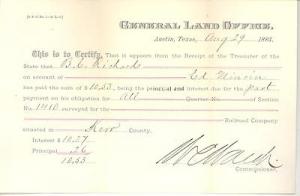 GENERAL LAND OFFICE,
Austin, Texas, Aug 29 188
This is to Certify, That it appears from the Receipt of the Treasurer of the
State that B. C. Richards
on account of Ed
has paid the sum of $10.53, being the principal and interest due for the part
payment on his obligation for All Quarter No. of Section
No. 1410 surveyed for the
Railroad Company
situated in Kerr County.
Interest $ 10.27
Principal .26
10.53
Commissioner.